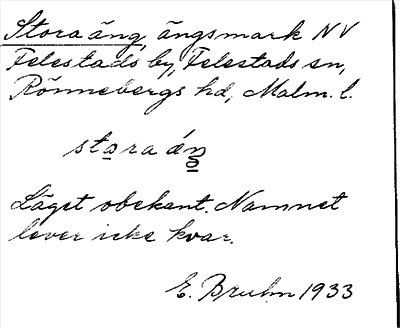 Stora äng, ängsmark NV
Felestads by, Felestads sn,
Rönnebergs hd, Malm. l.
stora áŋ
Läget obekant. Namnet
lever icke kvar.
E. Bruhn 1933